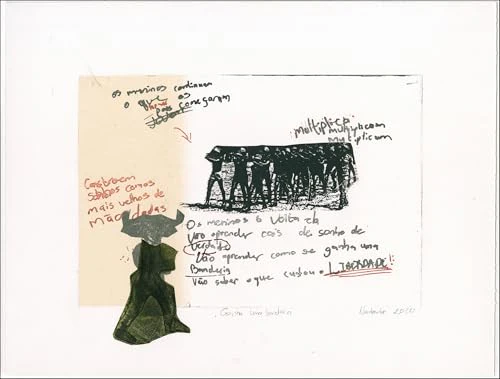 os meninos continuam
o que os
pais começaram
multiplica
multiplicam
multiplicam
Constroem
sonhos com os
mais velhos de
mãos dadas
Os meninos à volta da
vão aprender cois de sonho de
verdade
Vão aprender como se ganha uma
Bandeira
Vão saber o que custou a LIBERDADE!